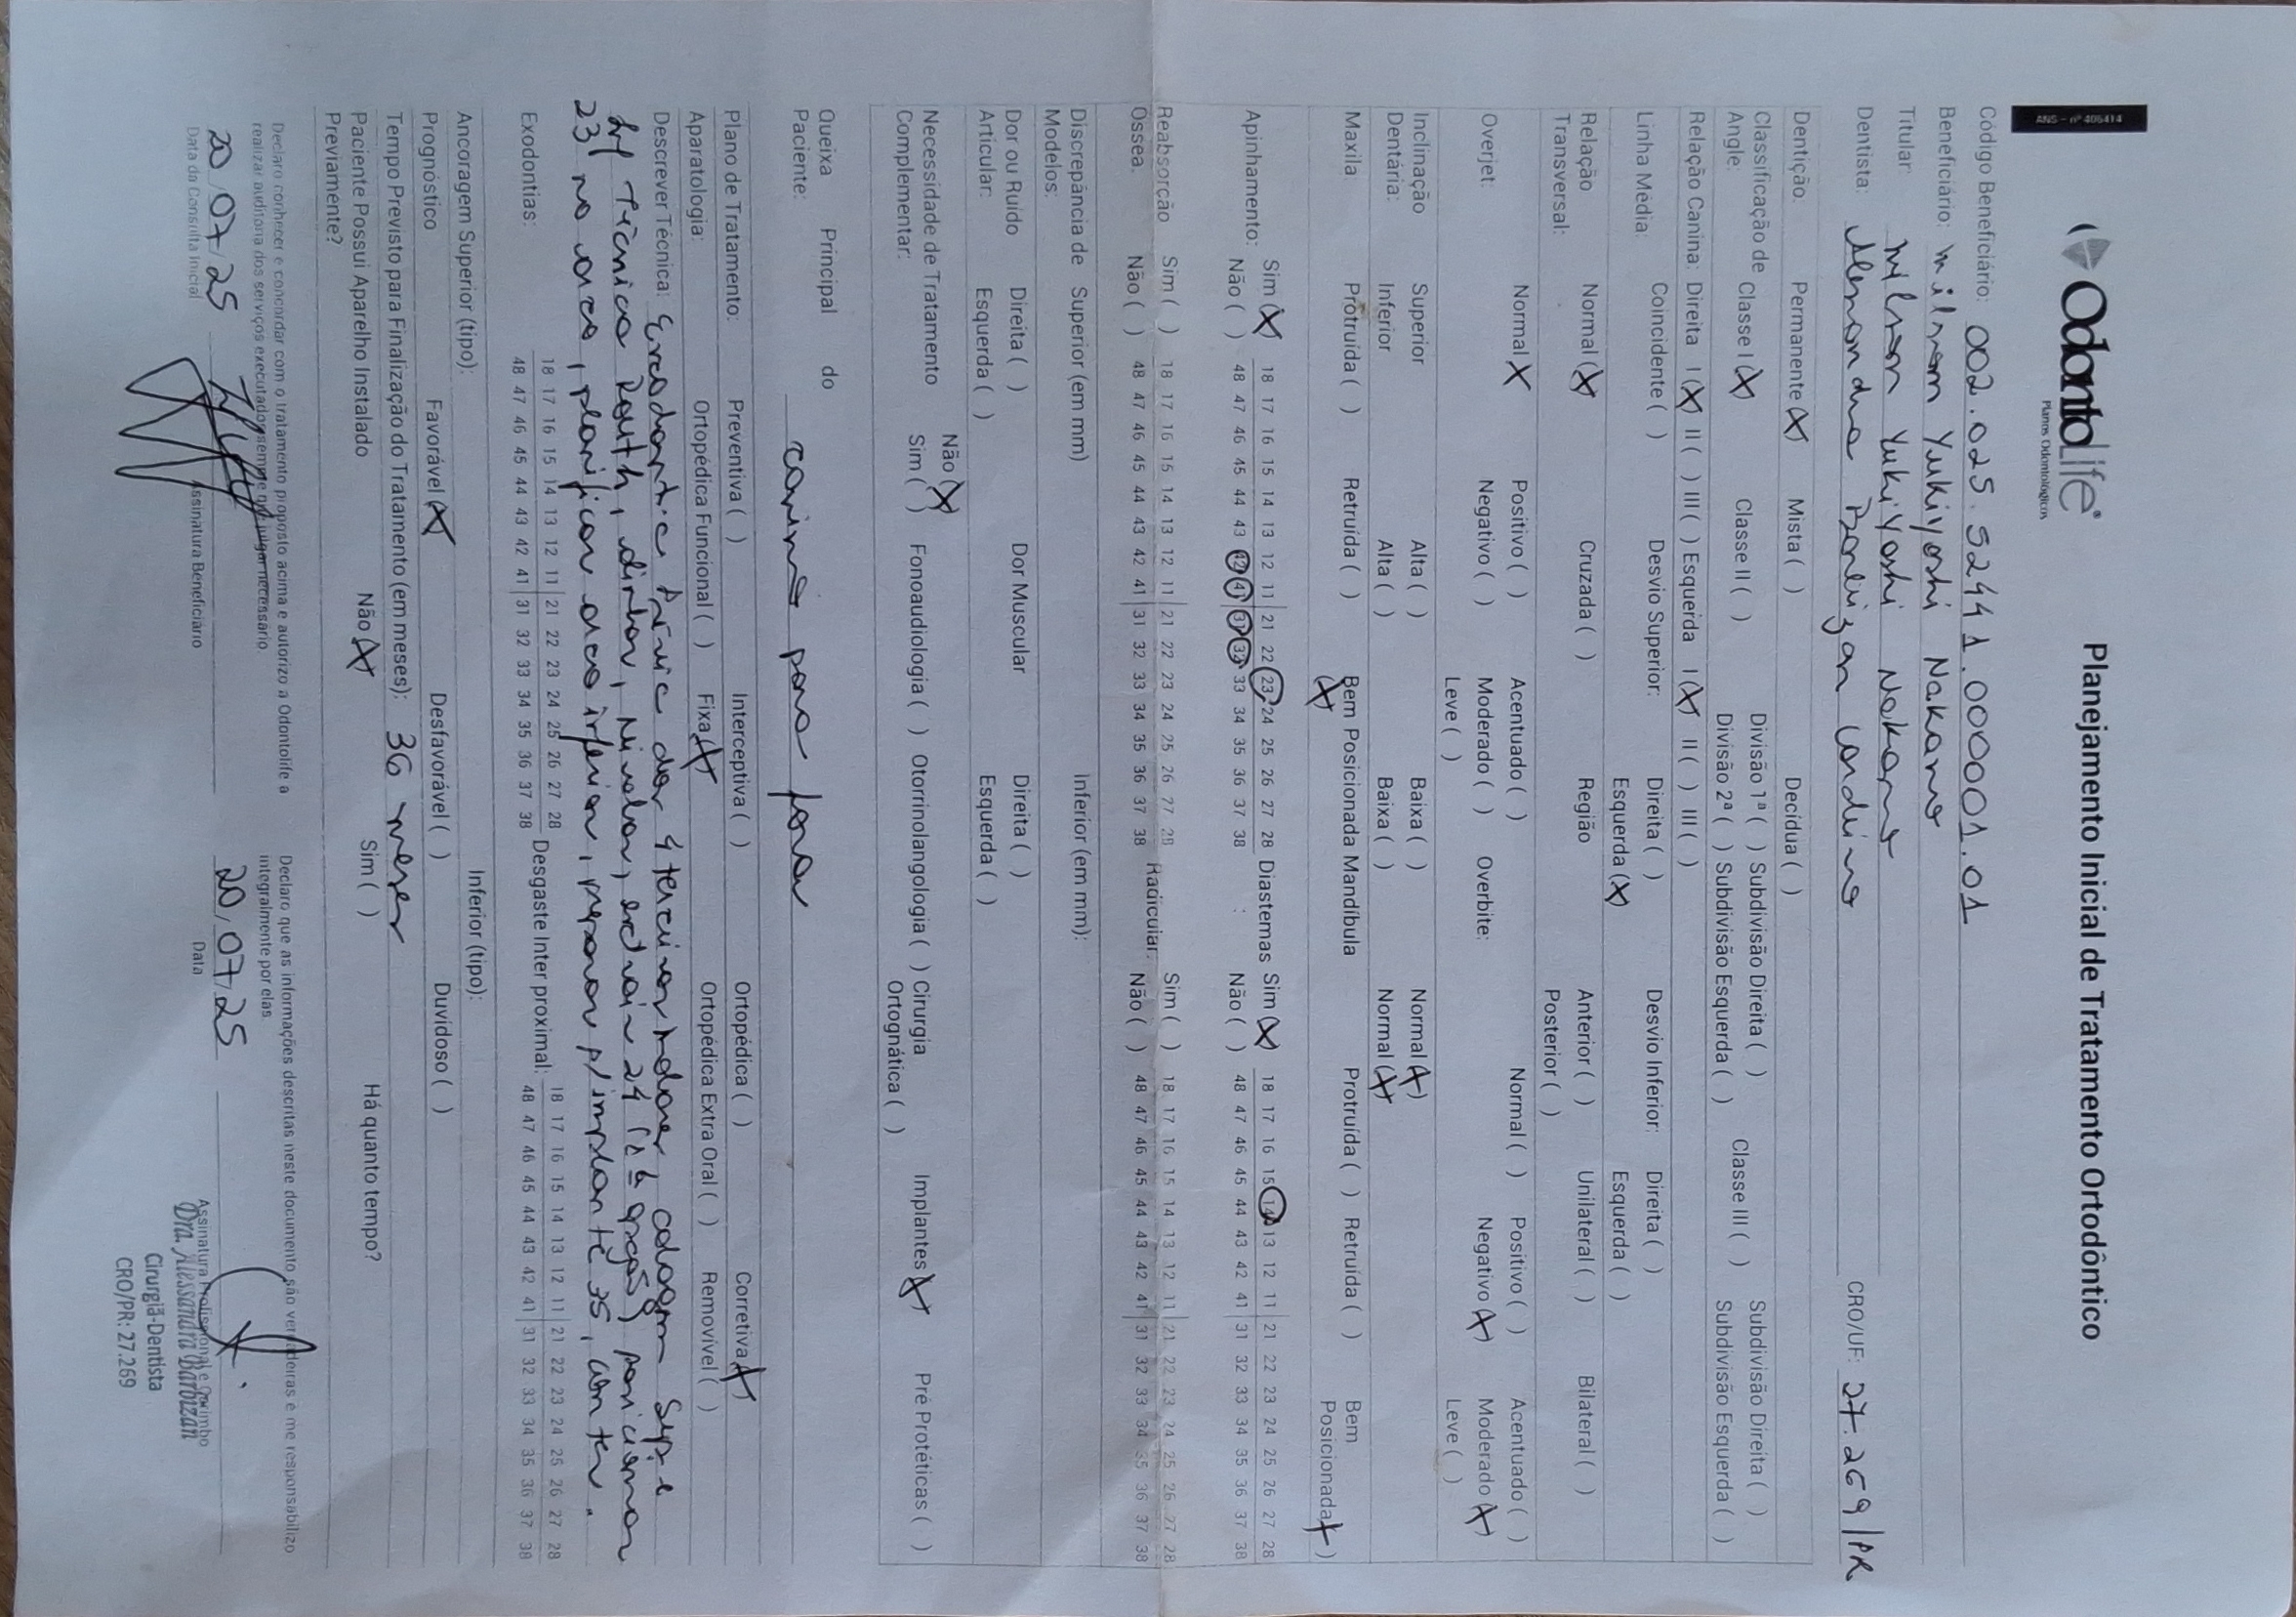 ANS - nº 406414
OdontoLife®
Planos Odontológicos
Planejamento Inicial de Tratamento Ortodôntico
Código Beneficiário: 002.025.52441.0000001.01
Beneficiário: Milson Yukiyoshi Nakano
Titular: Milson Yukiyoshi Nakano
Dentista: Alessandra Barbizan Cordeiro CRO/UF: 27.269/PR
Dentição: Permanente (X) Mista ( ) Decídua ( )
Classificação de Angle: Classe I (X) Classe II ( ) Divisão 1ª ( ) Subdivisão Direita ( ) Classe III ( ) Subdivisão Direita ( )
Divisão 2ª ( ) Subdivisão Esquerda ( ) Subdivisão Esquerda ( )
Relação Canina: Direita I (X) II ( ) III ( ) Esquerda I (X) II ( ) III ( )
Linha Média: Coincidente ( ) Desvio Superior: Direita ( ) Desvio Inferior: Direita ( )
Esquerda (X) Esquerda ( )
Relação Transversal: Normal (X) Cruzada ( ) Região Anterior ( ) Unilateral ( ) Bilateral ( )
Posterior ( )
Overjet: Normal X Positivo ( ) Acentuado ( ) Overbite: Normal ( ) Positivo ( ) Acentuado ( )
Negativo ( ) Moderado ( ) Negativo (X) Moderado (X)
Leve ( ) Leve ( )
Inclinação Dentária: Superior Alta ( ) Baixa ( ) Normal (X)
Inferior Alta ( ) Baixa ( ) Normal (X)
Maxila: Protruída ( ) Retruída ( ) Bem Posicionada (X) Mandíbula Protruída ( ) Retruída ( ) Bem Posicionada (X)
Apinhamento: Sim (X) 18 17 16 15 14 13 12 11 | 21 22 23 24 25 26 27 28 Diastemas Sim (X) 18 17 16 15 14 13 12 11 | 21 22 23 24 25 26 27 28
Não ( ) 48 47 46 45 44 43 42 41 31 32 33 34 35 36 37 38 : Não ( ) 48 47 46 45 44 43 42 41 31 32 33 34 35 36 37 38
Reabsorção Óssea: Sim ( ) 18 17 16 15 14 13 12 11 | 21 22 23 24 25 26 27 28 Radicular: Sim ( ) 18 17 16 15 14 13 12 11 | 21 22 23 24 25 26 27 28
Não ( ) 48 47 46 45 44 43 42 41 | 31 32 33 34 35 36 37 38 Não ( ) 48 47 46 45 44 43 42 41 | 31 32 33 34 35 36 37 38
Discrepância de Modelos: Superior (em mm) Inferior (em mm):
Dor ou Ruído Articular: Direita ( ) Dor Muscular Direita ( )
Esquerda ( ) Esquerda ( )
Necessidade de Tratamento Complementar: Não (X)
Sim ( ) Fonoaudiologia ( ) Otorrinolangologia ( ) Cirurgia Ortognática ( ) Implantes (X) Pré Protéticas ( )
Queixa Principal do Paciente: canino para fora
Plano de Tratamento: Preventiva ( ) Interceptiva ( ) Ortopédica ( ) Corretiva (X)
Aparatologia: Ortopédica Funcional ( ) Fixa (X) Ortopédica Extra Oral ( ) Removível ( )
Descrever Técnica: Exodontia prévia dos 4 terceiros molares, colagem Sup e
Inf Técnica Roth, alinhar, Nivelar, extrair 24 posicionar
23 no arco, planificar arco inferior, preparar p/ implante 35, conter.
Exodontias: 18 17 16 15 14 13 12 11 | 21 22 23 24 25 26 27 28 Desgaste Inter proximal: 18 17 16 15 14 13 12 11 | 21 22 23 24 25 26 27 28
48 47 46 45 44 43 42 41 | 31 32 33 34 35 36 37 38 48 47 46 45 44 43 42 41 | 31 32 33 34 35 36 37 38
Ancoragem Superior (tipo): Inferior (tipo):
Prognóstico Favorável (X) Desfavorável ( ) Duvidoso ( )
Tempo Previsto para Finalização do Tratamento (em meses): 36 meses
Paciente Possui Aparelho Instalado Previamente? Não (X) Sim ( ) Há quanto tempo?
Declaro conhecer e concordar com o tratamento proposto acima e autorizo a Odontolife a
realizar auditoria dos serviços executados sempre que julgar necessário.
Declaro que as informações descritas neste documento são verdadeiras e me responsabilizo
integralmente por elas.
20/07/25
Data da Consulta Inicial
Assinatura Beneficiário
20/07/25
Data
Assinatura Profissional e Carimbo
Dra. Alessandra Barbizan
Cirurgiã-Dentista
CRO/PR: 27.269